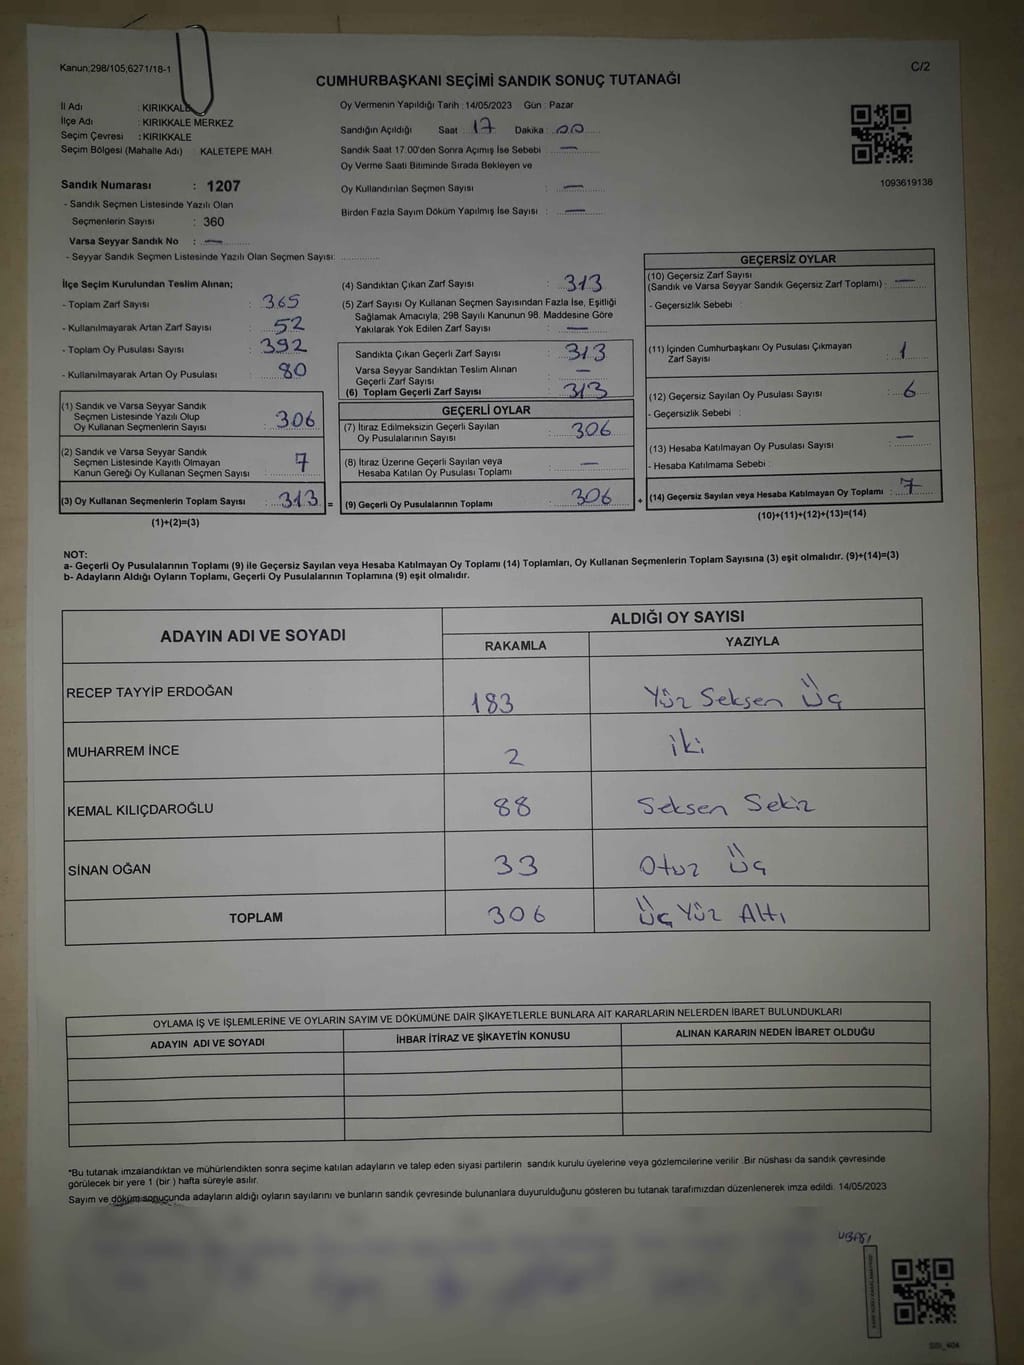 Kanun;298/105;6271/18-1
C/2
CUMHURBAŞKANI SEÇİMİ SANDIK SONUÇ TUTANAĞI
İl Adı : KIRIKKALE
İlçe Adı : KIRIKKALE MERKEZ
Seçim Çevresi : KIRIKKALE
Seçim Bölgesi (Mahalle Adı) : KALETEPE MAH.
Oy Vermenin Yapıldığı Tarih : 14/05/2023 Gün : Pazar
Sandığın Açıldığı Saat : 17 Dakika : 00
Sandık Saat 17:00'den Sonra Açımış İse Sebebi : —
Oy Verme Saati Bitiminde Sırada Bekleyen ve
Oy Kullandırılan Seçmen Sayısı : —
Birden Fazla Sayım Döküm Yapılmış İse Sayısı : —
1093619138
Sandık Numarası : 1207
- Sandık Seçmen Listesinde Yazılı Olan
Seçmenlerin Sayısı : 360
Varsa Seyyar Sandık No : —
- Seyyar Sandık Seçmen Listesinde Yazılı Olan Seçmen Sayısı:
İlçe Seçim Kurulundan Teslim Alınan;
- Toplam Zarf Sayısı : 365
- Kullanılmayarak Artan Zarf Sayısı : 52
- Toplam Oy Pusulası Sayısı : 392
- Kullanılmayarak Artan Oy Pusulası : 80
(1) Sandık ve Varsa Seyyar Sandık
Seçmen Listesinde Yazılı Olup
Oy Kullanan Seçmenlerin Sayısı : 306
(2) Sandık ve Varsa Seyyar Sandık
Seçmen Listesinde Kayıtlı Olmayan
Kanun Gereği Oy Kullanan Seçmen Sayısı : 7
(3) Oy Kullanan Seçmenlerin Toplam Sayısı : 313 =
(1)+(2)=(3)
(4) Sandıktan Çıkan Zarf Sayısı : 313
(5) Zarf Sayısı Oy Kullanan Seçmen Sayısından Fazla İse, Eşitliği
Sağlamak Amacıyla, 298 Sayılı Kanunun 98. Maddesine Göre
Yakılarak Yok Edilen Zarf Sayısı : —
Sandıkta Çıkan Geçerli Zarf Sayısı : 313
Varsa Seyyar Sandıktan Teslim Alınan
Geçerli Zarf Sayısı : —
(6) Toplam Geçerli Zarf Sayısı : 313
GEÇERLİ OYLAR
(7) İtiraz Edilmeksizin Geçerli Sayılan
Oy Pusulalarının Sayısı : 306
(8) İtiraz Üzerine Geçerli Sayılan veya
Hesaba Katılan Oy Pusulası Toplamı : —
(9) Geçerli Oy Pusulalarının Toplamı : 306 +
GEÇERSİZ OYLAR
(10) Geçersiz Zarf Sayısı
(Sandık ve Varsa Seyyar Sandık Geçersiz Zarf Toplamı) : —
- Geçersizlik Sebebi :
(11) İçinden Cumhurbaşkanı Oy Pusulası Çıkmayan
Zarf Sayısı : 1
(12) Geçersiz Sayılan Oy Pusulası Sayısı : 6
- Geçersizlik Sebebi :
(13) Hesaba Katılmayan Oy Pusulası Sayısı : —
- Hesaba Katılmama Sebebi :
(14) Geçersiz Sayılan veya Hesaba Katılmayan Oy Toplamı : 7
(10)+(11)+(12)+(13)=(14)
NOT:
a- Geçerli Oy Pusulalarının Toplamı (9) ile Geçersiz Sayılan veya Hesaba Katılmayan Oy Toplamı (14) Toplamları, Oy Kullanan Seçmenlerin Toplam Sayısına (3) eşit olmalıdır. (9)+(14)=(3)
b- Adayların Aldığı Oyların Toplamı, Geçerli Oy Pusulalarının Toplamına (9) eşit olmalıdır.
ADAYIN ADI VE SOYADI ALDIĞI OY SAYISI
RAKAMLA YAZIYLA
RECEP TAYYİP ERDOĞAN 183 Yüz Seksen Üç
MUHARREM İNCE 2 iki
KEMAL KILIÇDAROĞLU 88 Seksen Sekiz
SİNAN OĞAN 33 Otuz Üç
TOPLAM 306 Üç Yüz Altı
OYLAMA İŞ VE İŞLEMLERİNE VE OYLARIN SAYIM VE DÖKÜMÜNE DAİR ŞİKAYETLERLE BUNLARA AİT KARARLARIN NELERDEN İBARET BULUNDUKLARI
ADAYIN ADI VE SOYADI İHBAR İTİRAZ VE ŞİKAYETİN KONUSU ALINAN KARARIN NEDEN İBARET OLDUĞU
*Bu tutanak imzalandıktan ve mühürlendikten sonra seçime katılan adayların ve talep eden siyasi partilerin sandık kurulu üyelerine veya gözlemcilerine verilir. Bir nüshası da sandık çevresinde
görülecek bir yere 1 (bir ) hafta süreyle asılır.
Sayım ve döküm sonucunda adayların aldığı oyların sayılarını ve bunların sandık çevresinde bulunanlara duyurulduğunu gösteren bu tutanak tarafımızdan düzenlenerek imza edildi. 14/05/2023